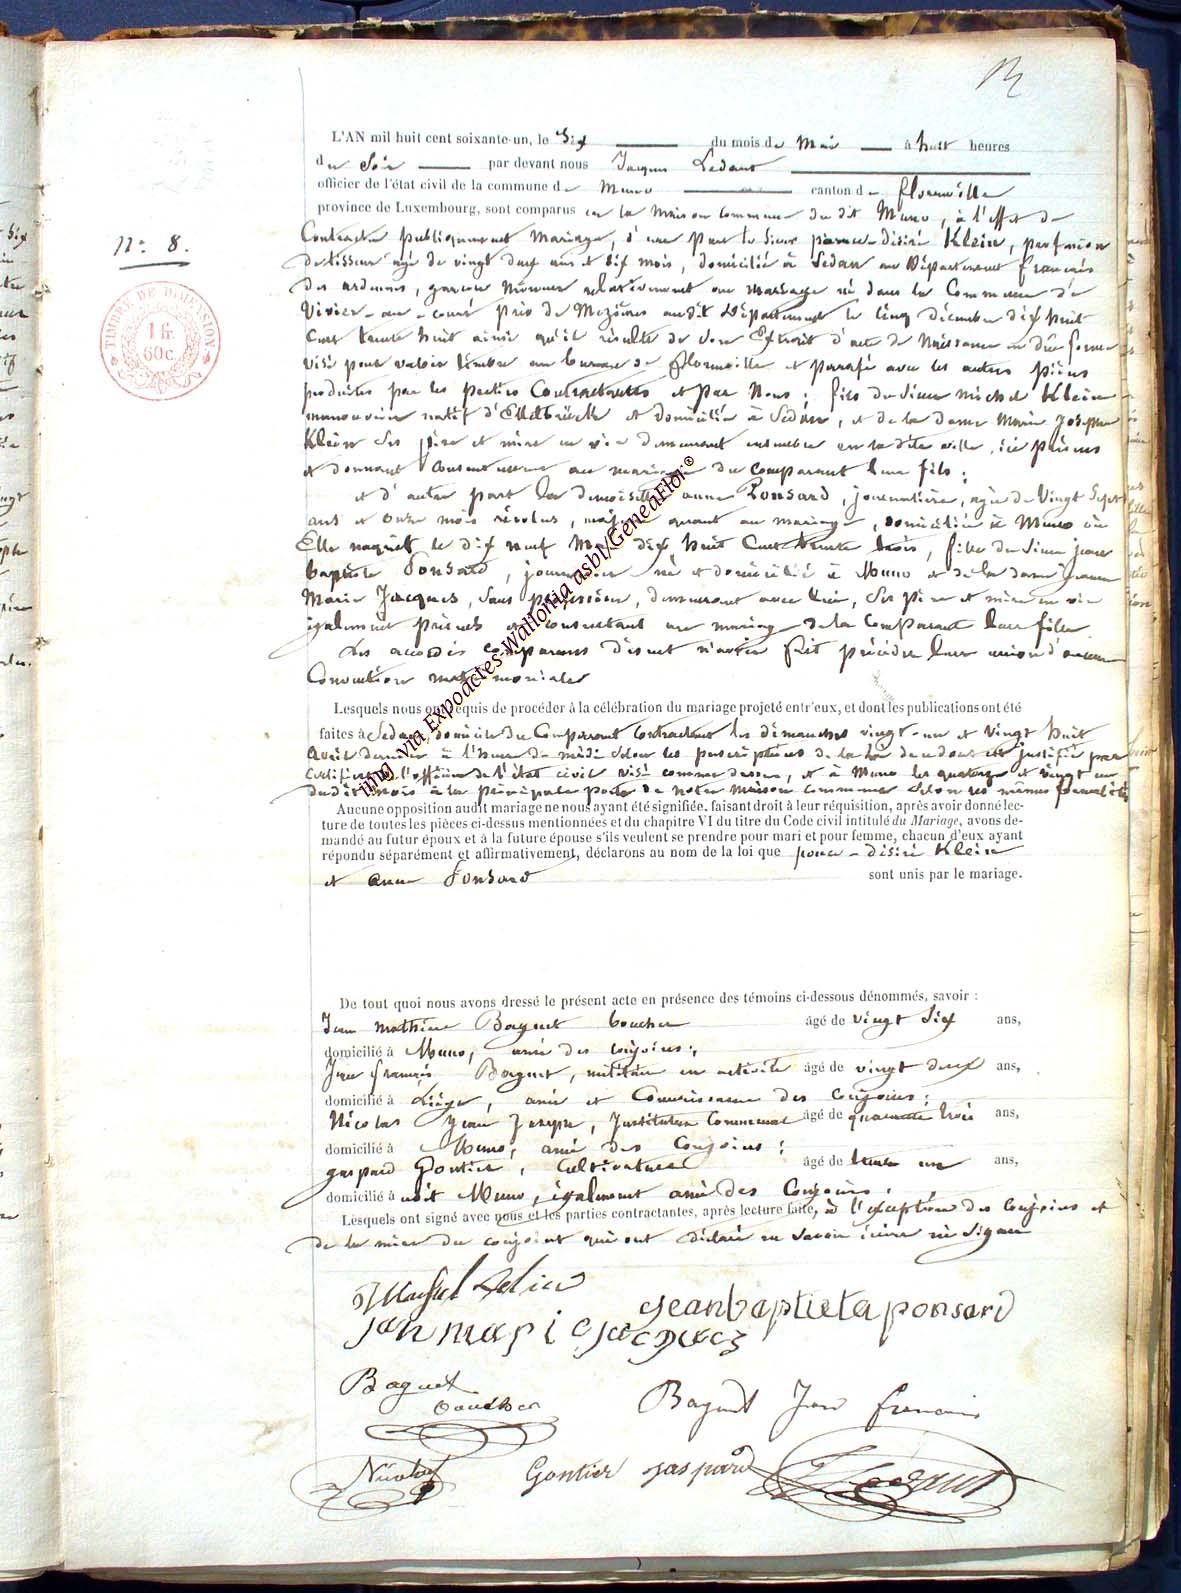 N° 8.
TIMBRE DE DIMENSION
1 fr.
60 c.
L'AN mil huit cent soixante-un, le Six du mois de Mai à huit heures
du Soir par devant nous Jacques Ledant
officier de l'état civil de la commune de Muno canton de florenville
province de Luxembourg, sont comparus en la Maison Commune du dit Muno, à l'effet de
Contracter publiquement Mariage, d'une part le Sieur ponce-désiré Klein, profession
de tisseur âgé de vingt deux ans et six mois, domicilié à Sedan au Département français
des ardennes, garçon Mineur relativement au Mariage né dans la Commune de
Vivier-au-court près de Mezières audit Département le Cinq décembre dix huit
Cent trente huit ainsi qu'il résulte de son Extrait d'acte de Naissance en due forme
visé pour valoir timbre au bureau de florenville et parafé avec les autres pièces
produites par les parties Contractantes et par Nous ; fils du Sieur michel Klein
manouvrier natif d'Ettelbrück et domicilié à Sedan, et de la dame Marie Joseph
Klein Ses père et mère en vie demeurant ensemble en la dite ville, ici présens
et donnant Consentement au mariage du Comparant leur fils ;
et d'autre part la demoiselle anne Ponsard, journalière, agée de Vingt Sept
ans et onze mois révolus, majeure quant au mariage, domiciliée à Muno où
Elle naquit le dix neuf Mai dix huit Cent trente trois, fille du Sieur jean
baptiste Ponsard, journalier né et domicilié à Muno et de la dame Jeanne
Marie Jacques, Sans profession, demeurant avec lui, Ses père et mère en vie
également présents et consentant au mariage de la Comparante leur fille.
Les accordés comparans disent n'avoir fait précéder leur union d'aucune
Convention matrimoniale
Lesquels nous ont requis de procéder à la célébration du mariage projeté entr'eux, et dont les publications ont été
faites à Sedan, domicile du Comparant Contractant les dimanches vingt-un et vingt huit
Avril dernier à l'heure de midi Selon les prescriptions de la loi dont est justifié par
Certificat de l'officier de l'état civil visé comme dessus, et à Muno les quatorze et vingt un
du dit Mois à la principale porte de notre Maison Commune Selon les mêmes formalités
Aucune opposition audit mariage ne nous ayant été signifiée, faisant droit à leur réquisition, après avoir donné lec-
ture de toutes les pièces ci-dessus mentionnées et du chapitre VI du titre du Code civil intitulé du Mariage, avons de-
mandé au futur époux et à la future épouse s'ils veulent se prendre pour mari et pour femme, chacun d'eux ayant
répondu séparément et affirmativement, déclarons au nom de la loi que ponce-désiré Klein
et anne Ponsard sont unis par le mariage.
De tout quoi nous avons dressé le présent acte en présence des témoins ci-dessous dénommés, savoir :
Jean Mathieu Baguet boucher âgé de vingt Six ans,
domicilié à Muno, ami des conjoins ;
Jean françois Baguet, militaire en activité âgé de vingt deux ans,
domicilié à Liège, ami et Connaissance des conjoins ;
Nicolas Jean Joseph, Instituteur Communal âgé de quarante trois ans,
domicilié à Muno, ami des Conjoins ;
gaspard Gontier, Cultivateur âgé de trente un ans,
domicilié à Muno, également ami des Conjoins.
Lesquels ont signé avec nous et les parties contractantes, après lecture faite, à l'exception des Conjoins et
de la mère du conjoint qui ont déclaré ne Savoir écrire ni Signer
jeanbaptista ponsard
jan marie jacques
Baguet
boucher
Baguet Jean francois
Nicolas
Gontier gaspard
J Ledant
img via Expoactes-Wallonia asbl/GeneaFlor ©